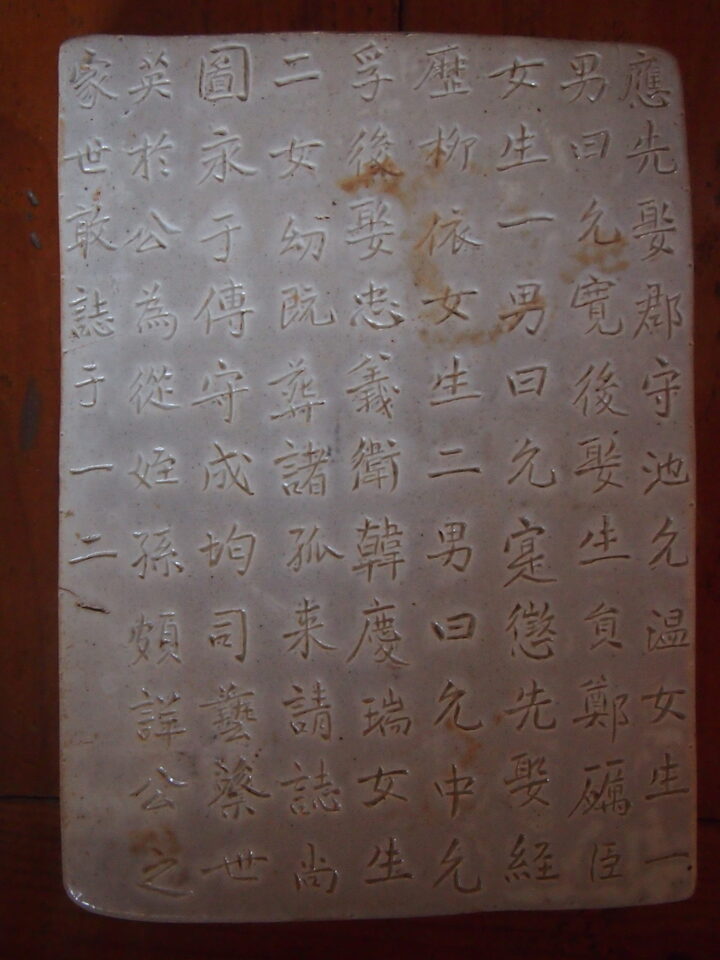 應先娶郡守池允温女生一
男曰允寛後娶生員鄭礪臣
女生一男曰允寔懲先娶經
歷柳依女生二男曰允中允
孚後娶忠義衛韓慶瑞女生
二女幼既葬諸孤来請誌尚
圖永于傳守成均司藝蔡世
英於公為從姪孫頗詳公之
家世敢誌于一二